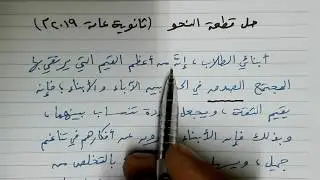 حل قطعة النحو (ثانوية عامة ٢٠١٩ م)
أبنائي الطلاب، إنّ من أعظم القيم التي يرتقي بها
المجتمع الصدق في بين الآباء والأبناء، فإنه
يقيم الثقة، ويجعل تنساب بينهما،
وبذلك فإن الأبناء عن أفكارهم في تناغم
جميل، بالتخلص من